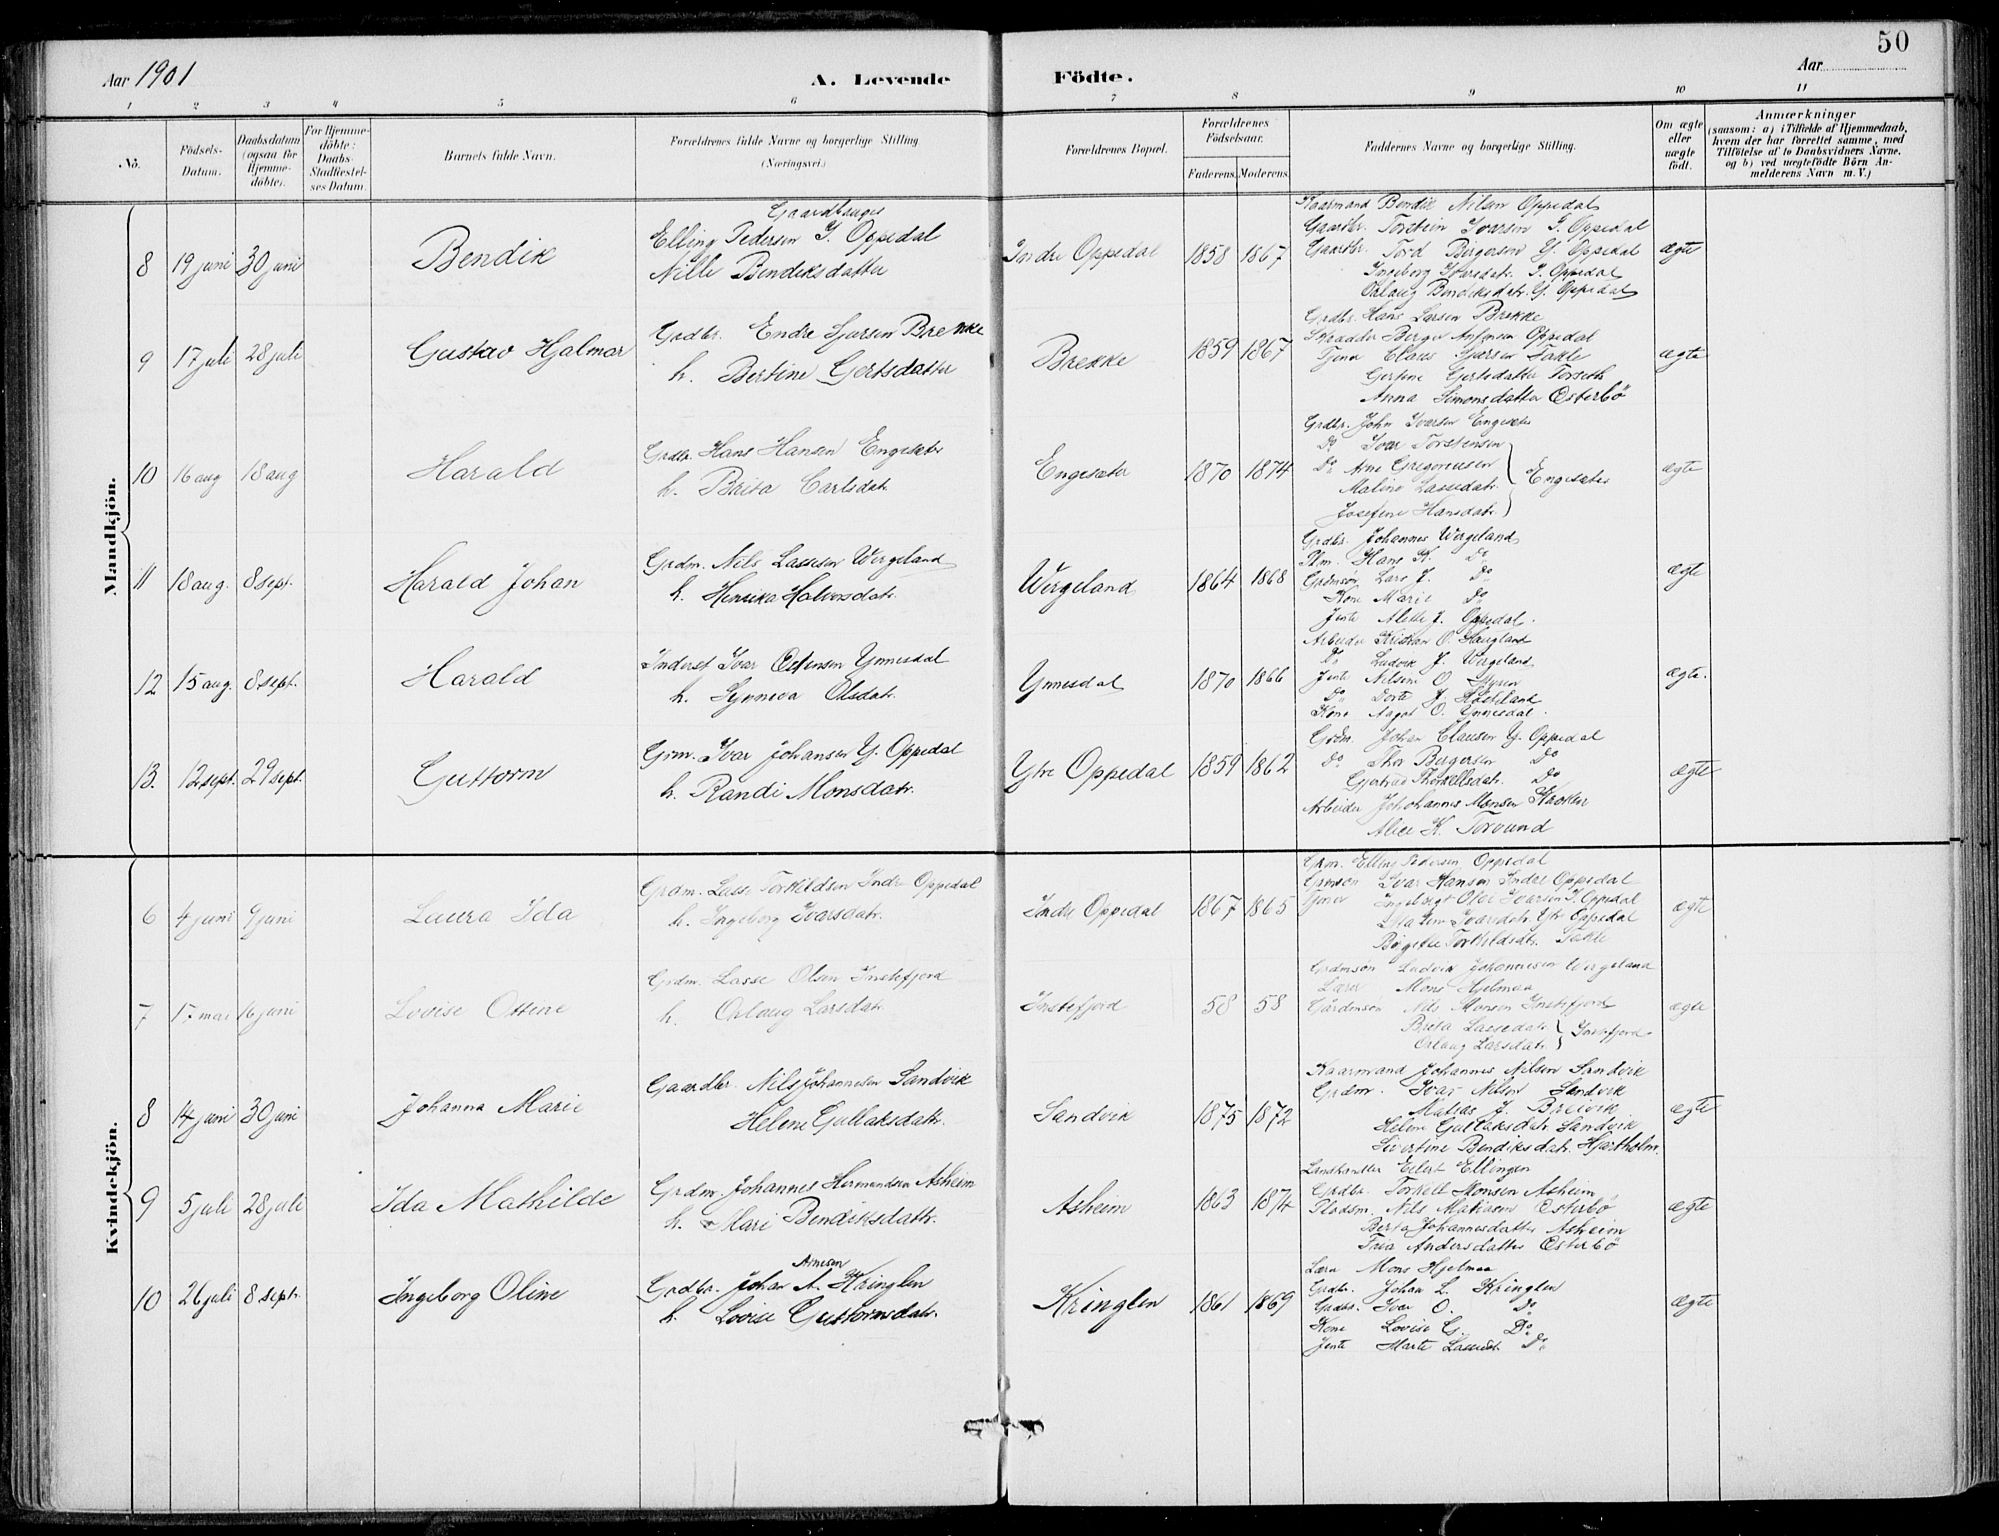 50
Aar 1901
A. Levende Födte.
Aar
1 2 3 4 5 6 7 8 9 10 11
No.
Födsels-Datum.
Daabsdatum (ogsaa for Hjemmedöbte).
For Hjemmedöbte: Daabs-Stadfæstelses Datum.
Barnets fulde Navn.
Forældrenes fulde Navne og borgerlige Stilling (Næringsvei.)
Forældrenes Bopæl.
Forældrenes Födselsaar.
Faderens. Moderens.
Faddernes Navne og borgerlige Stilling.
Om ægte eller uægte født.
Anmærkninger
(saasom: a) i Tilfælde af Hjemmedaab, hvem der har forrettet samme, med Tilföielse af to Daabsvidners Navne, og b) ved uægtefödte Börn Anmelderens Navn m. V.)
Mandkjön.
8 19 juni 30 juni Bendik
Gaardbruger
Elling Pedersen I. Oppedal
Nille Bendiksdatter
Indre Oppedal 1858 1867
Kaarmand Bendik Nilsen Oppedal
Gaardbr. Torstein Ivarsen I. Oppedal
Gaardbr. Tord Bergersen Y. Oppedal
Ingeborg Ivarsdatr. I. Oppedal
Orlaug Bendiksdatr. Y. Oppedal
ægte
9 17 juli 28 juli Gustav Hjalmar
Grdbr. Endre Sjursen Brekke
h. Bertine Gertsdatter
Brekke 1859 1867
Grdbr. Hans Larsen Brekke
Skrædder Berger Oppedal
Tjener Claus Takle
Gertine Gertsdatter Torseth
Anna Simonsdatter Østerbö
ægte
10 16 aug 18 aug Harald
Grdbr. Hans Hansen Engesæter
h. Brita Carlsdatr.
Engesæter 1870 1874
Grdbr. John Ivarsen Engesæter
Do Ivar Torstensen
Do Arne Gregoriussen
Malene Lassedatr.
Josefine Hansdatr.
Engesæter
ægte
11 18 aug. 8 sept. Harald Johan
Grdm. Nils Lassesen Wergeland
h. Henrika Halvorsdatr.
Wergeland 1864 1868
Grdbr. Johannes Wergeland
Hans K. Do
Grdmsøn Lars J. Do
Kone Marie Do
Jente Alette J. Oppedal.
ægte
12 15 aug. 8 sept. Harald
Inderst Ivar Østensen Ynnesdal
h. Synneva Olsdatr.
Ynnesdal 1870 1866
Arbeider Kristian O. Haugland
Do Ludvik J. Wergeland
Jente Nilsine O.
Do Dorte J.
Kone Aagot O. Ynnesdal.
ægte.
13. 12 sept. 29 sept. Guttorm
Grm. Ivar Johansen Y. Oppedal
h. Randi Monsdatr.
Ytre Oppedal 1859 1862
Grdm. Johan Clausen Y. Oppedal
Do Thor Bergersen Do
Gjertrud Thorkellsdatr. Do
Arbeider Johohannes Monsen
Alice K. Torvund
ægte
Kvindekjön.
6 4 juni 9 juni Laura Ida
Grdm. Lasse Torkildsen Indre Oppedal
h. Ingeborg Ivarsdatr.
Indre Oppedal 1867 1865
Grm. Elling Pedersen Oppedal
Grmsön Ivar Hansen Indre Oppedal
Tjener Ingebrigt Olai Ivarsen I. Oppedal
Ivarsdatr. Ytr Oppedal
Torkildsdatr. Takle
ægte
7 17 mai 16 juni Lovise Ottine
Grdm. Lasse Olsen Instefjord
h. Orlaug Larsdatr.
Instefjord 58 58
Grdmsön Ludvik Johannesen Wergeland
Lærer Mons Hjelmaa
Gårdmsön Nils Monsen Instefjord
Brita Lassedatr.
Orlaug Larsdatr.
Instefjord
ægte
8 14 juni 30 juni Johanna Marie
Gaardbr. Nils Johannesen Sandvik
Helene Gullaksdatr.
Sandvik 1875 1872
Kaarmand Johannes Nilsen Sandvik
Grdm. Ivar Nilsen Sandvik
Matias J. Breivik
Helene Gullaksdatr Sandvik
Sivertine Bendiksdatr. Hjartholm.
ægte
9 5 juli 28 juli Ida Mathilde
Grdm Johannes Hermundsen Asheim
h. Mari Bendiksdattr.
Asheim 1863 1874
Landhandler Eilert Ellingen
Grdbr. Torkell Monsen Asheim
Pladsm. Nils Matisen Østerbö
Berta Johannesdatter Asheim
Andersdatter Østerbö
ægte
10 26 juli 8 sept. Ingeborg Oline
Arnesen
Grdbr. Johan A. Kringlen
h. Lovise Guttormsdatr.
Kringlen 1861 1869
Lærer Mons Hjelmaa
Grdbr. Johan L. Kringlen
Grdbr. Ivar O. Do
Kone Lovise G. Do
Jente Marte Lassedt. Do
ægte